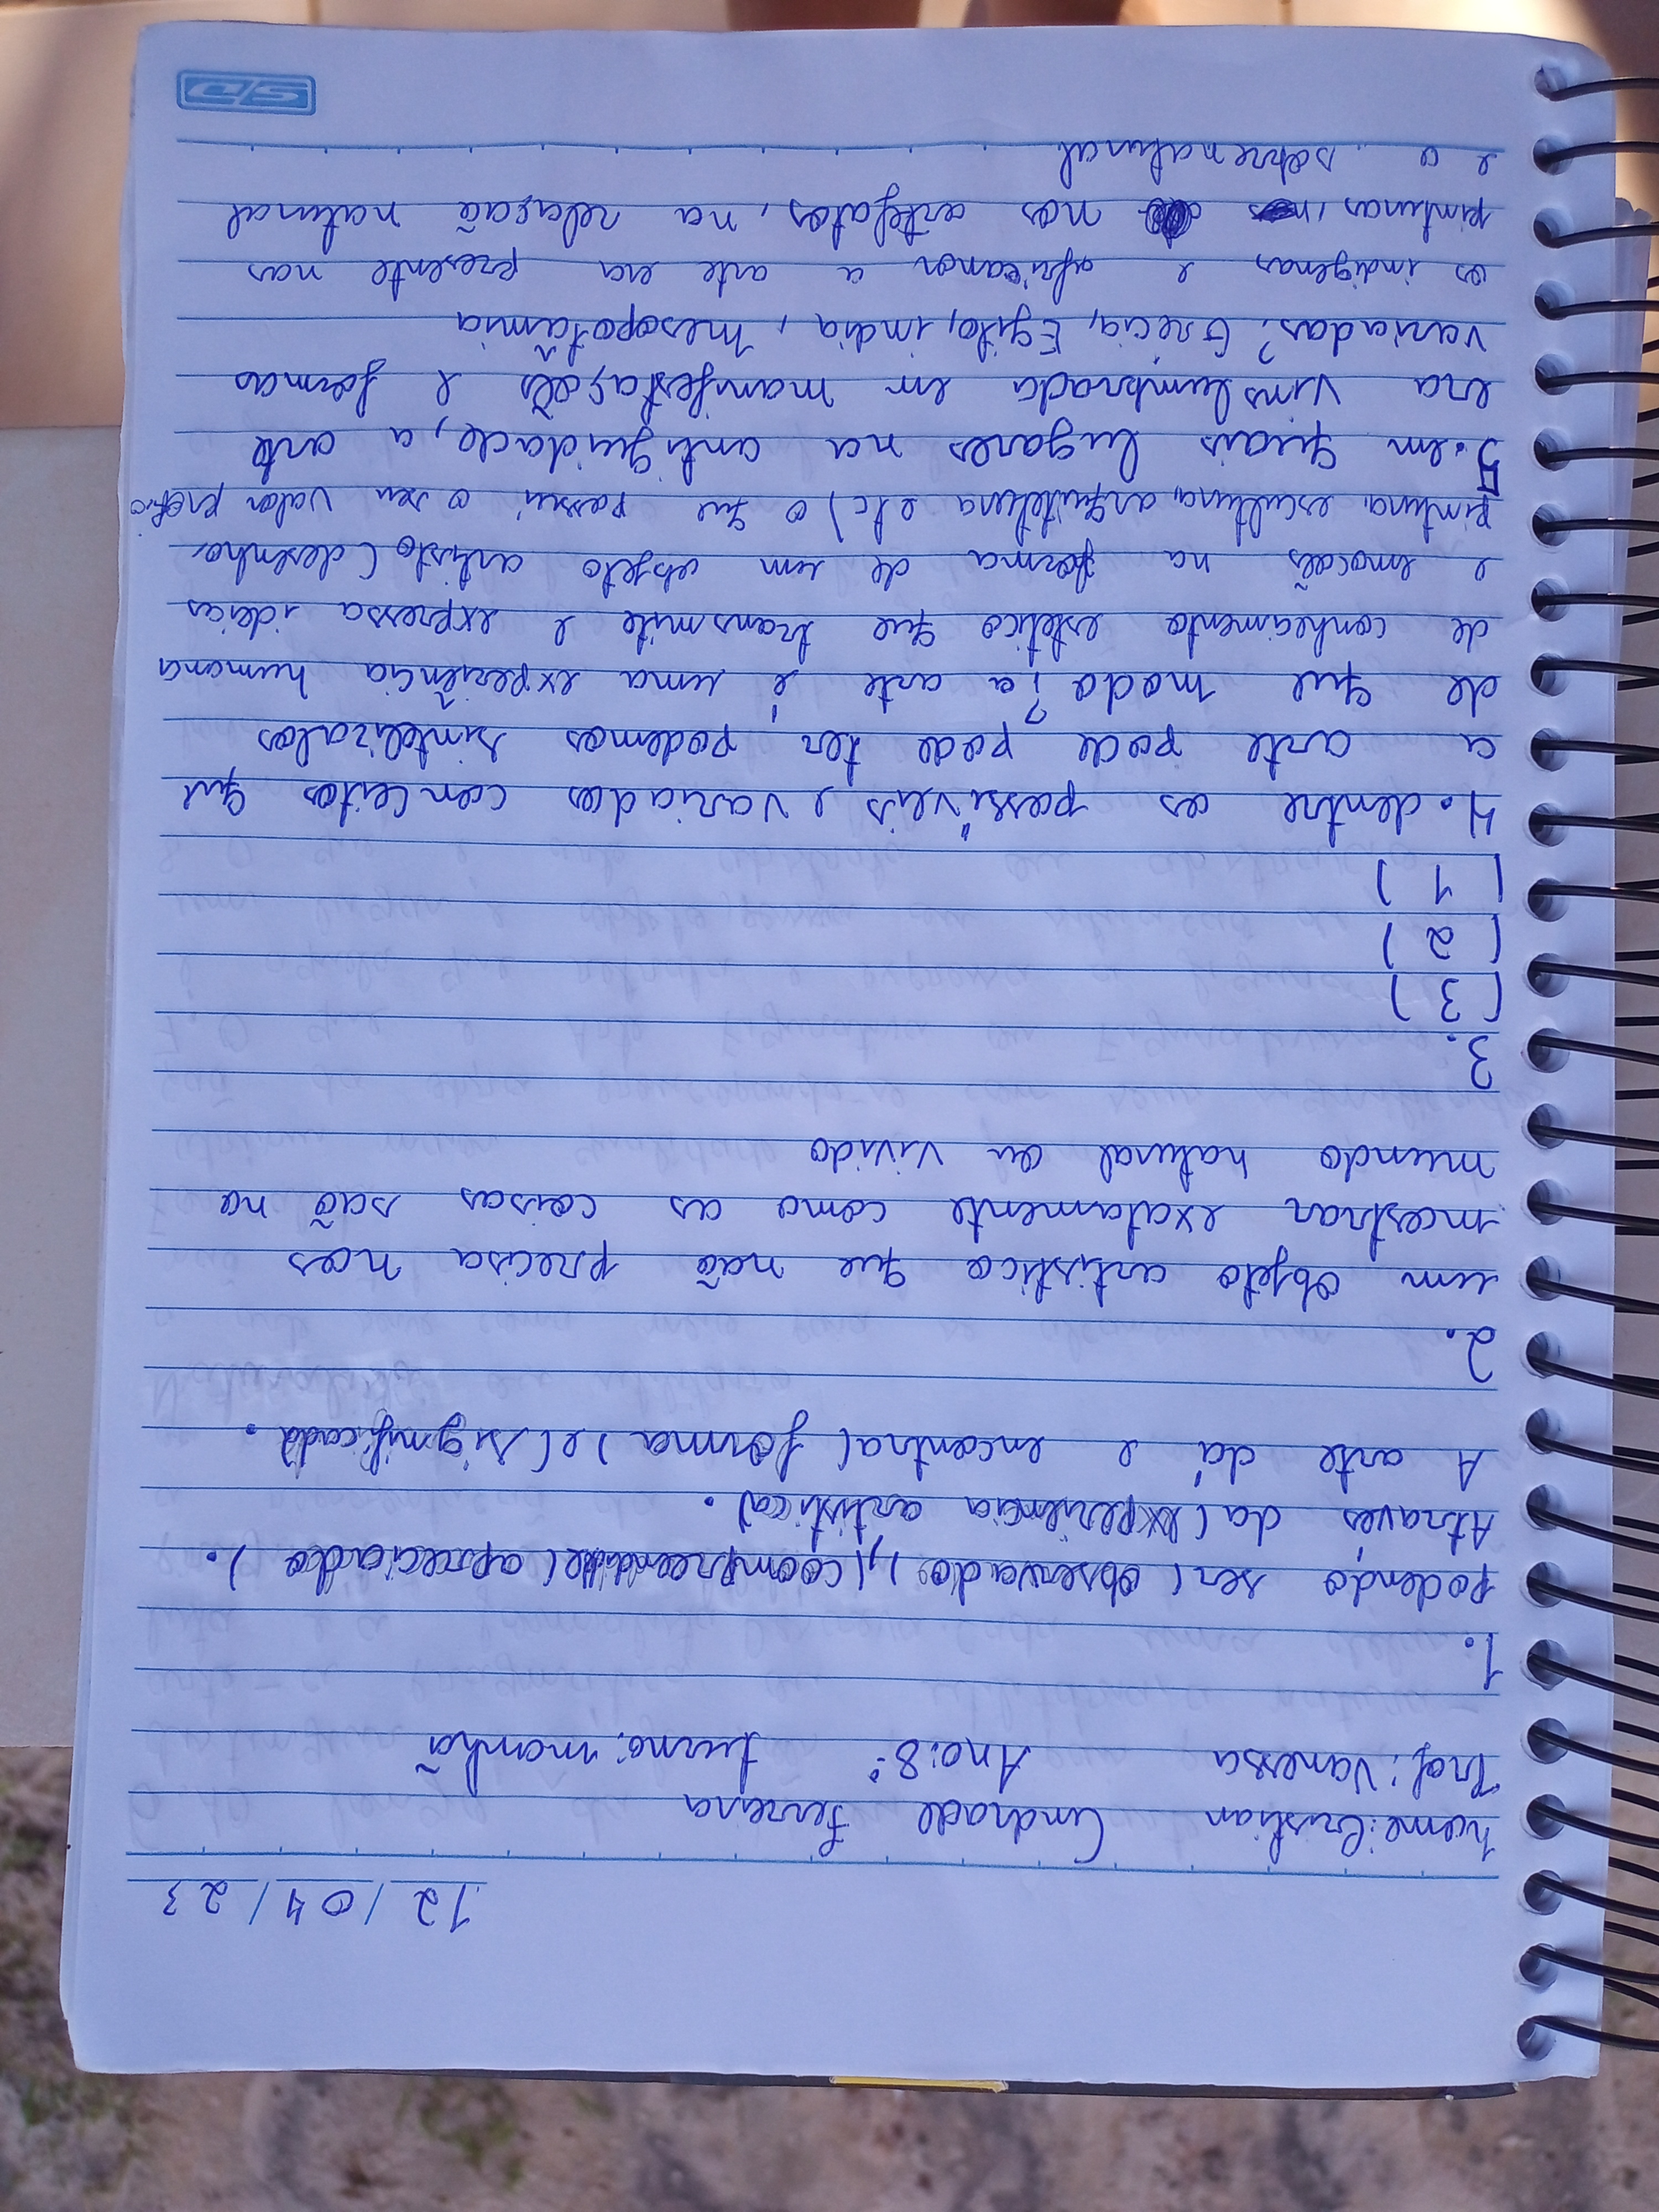 12/04/23
nome: Cristian Andrade ferreira
Prof: Vanessa Ano: 8º turno: manhã
1.
Podendo ser (observado), (coompreendide (apreciado).
Atravéz da (experiência artistica).
A arte dá e encontra (forma) e (significado.
2.
um objeto artistico que naõ precisa nos
mostrar exatamente como as coisas saõ no
mundo natural ou vivido
3.
(3)
(2)
(1)
4. dentre os possíveis e variados conceitos que
a arte pode pode ter podemos sintelizalos
de que modo? a arte é uma experiência humana
de conhecimento estetico que transmite e expressa ideias
e emocoẽs na forma de um objeto artisto (desenho
pintura, escultura, arquitetura etc) o que possui o seu valor propio
5. em quais lugares na antiguidade, a arte
era vinslumbrada em manifestaçoẽs e formas
variadas? Grecia, Egito, india, mesopotâmia
os indigenas e africanos a arte era presente nas
pinturas, nos artefatos, na relasaõ natural
e o sobrenatural